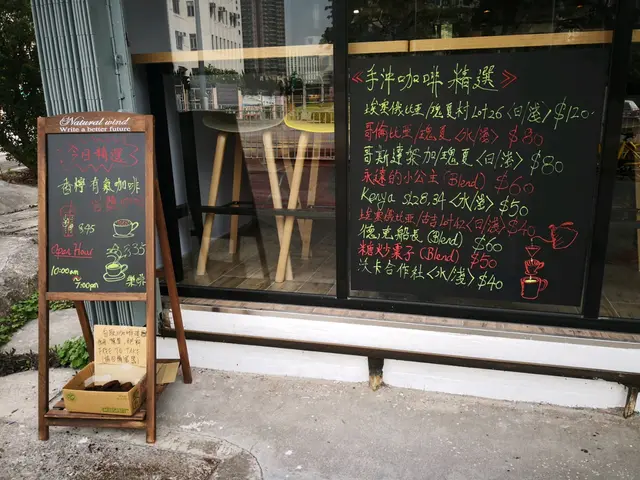 Natural wind
Write a better future
今日精選
香檸有氣咖啡
$45
$35
Open Hour
10:00am
~
7:00pm
樂
FREE TO TAKE
《手沖咖啡精選》
埃塞俄比亞/瑰夏村 Lot 26 <日/淺> $120
哥倫比亞/瑰夏 <水/淺> $80
哥斯達黎加/瑰夏 <日/淺> $80
永遠的小公主 (Blend) $60
Kenya SL28,34 <水/淺> $50
埃塞俄比亞/古吉 Lot 42 <日/淺> $40
德克船長 (Blend) $60
糖炒栗子 (Blend) $50
沃卡合作社 <水/淺> $40